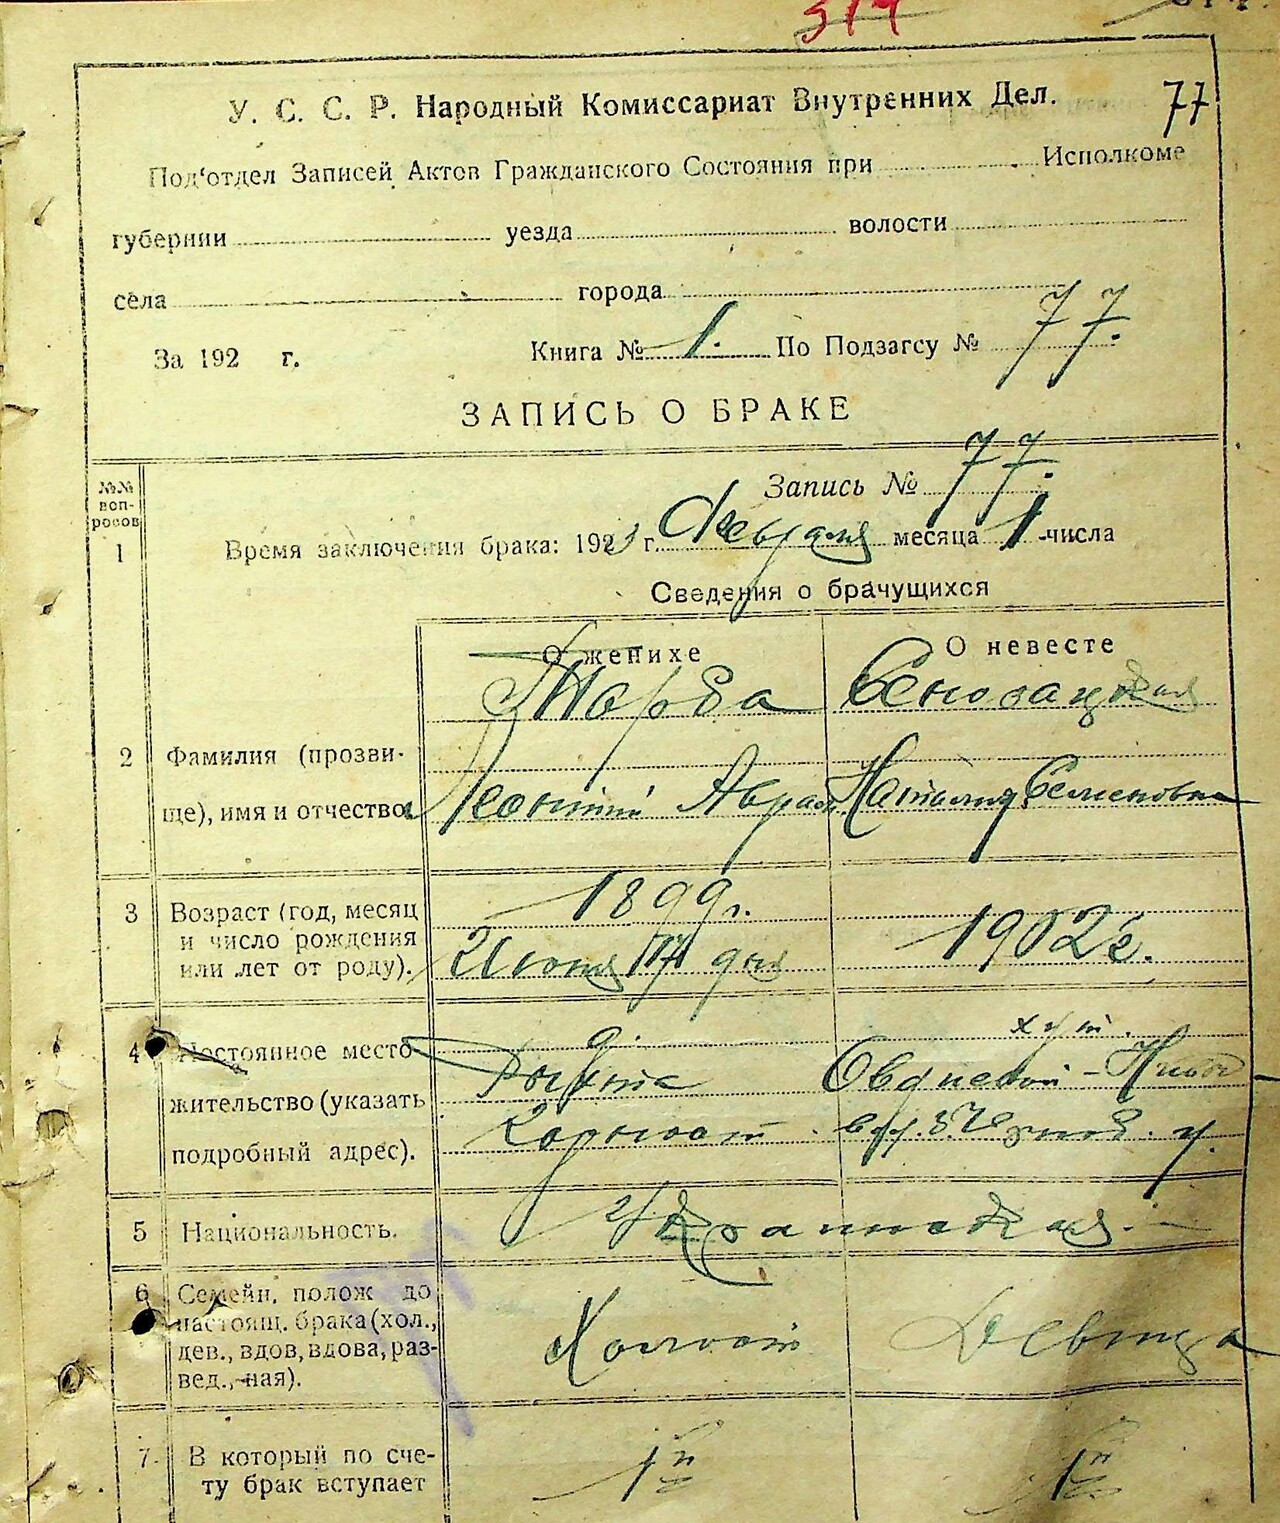 314
77
У. С. С. Р. Народный Комиссариат Внутренних Дел.
Под'отдел Записей Актов Гражданского Состояния при Исполкоме
губернии уезда волости
села города
За 192 г. Книга № 1. По Подзагсу № 77.
ЗАПИСЬ О БРАКЕ
№№ вопросов
Запись № 77.
1 Время заключения брака: 192 г. Февраля месяца 1 числа
Сведения о брачущихся
О женихе О невесте
2 Фамилия (прозви-
ще), имя и отчество
Леонтий Наталия Семеновна
3 Возраст (год, месяц
и число рождения
или лет от роду).
1899г.
Июня 17 дня
1902г.
4 Постоянное место-
жительство (указать
подробный адрес).
д. хут.
5 Национальность.
Украинская.
6 Семейн. полож до
настоящ. брака (хол.,
дев., вдов, вдова, раз-
вед., -ная).
Холост Девица
7 В который по сче-
ту брак вступает
1й 1й